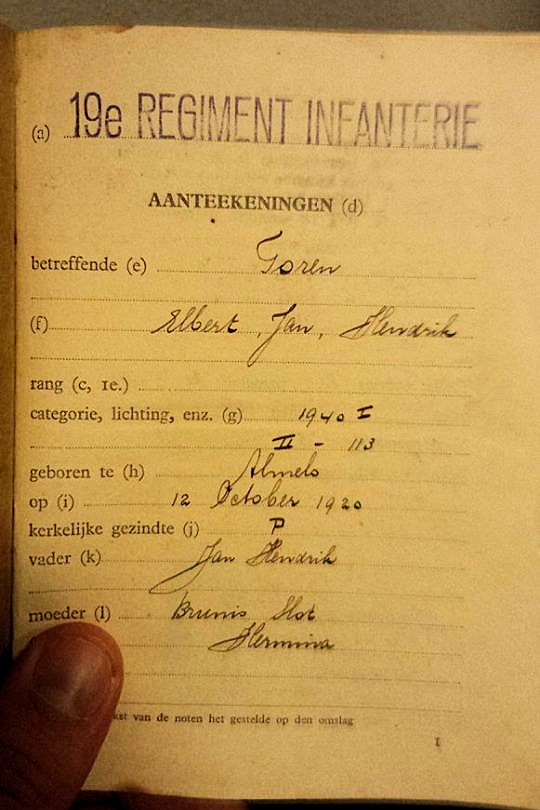 (a) 19e REGIMENT INFANTERIE
AANTEEKENINGEN (d)
betreffende (e) Toren
(f) Elbert, Jan, Hendrik
rang (c, 1e.)
categorie, lichting, enz. (g) 1940 I
II - 113
geboren te (h) Almelo
op (i) 12 October 1920
kerkelijke gezindte (j) P
vader (k) Jan Hendrik
moeder (l) Brunis Slot
Hermina
van de noten het gestelde op den omslag
1